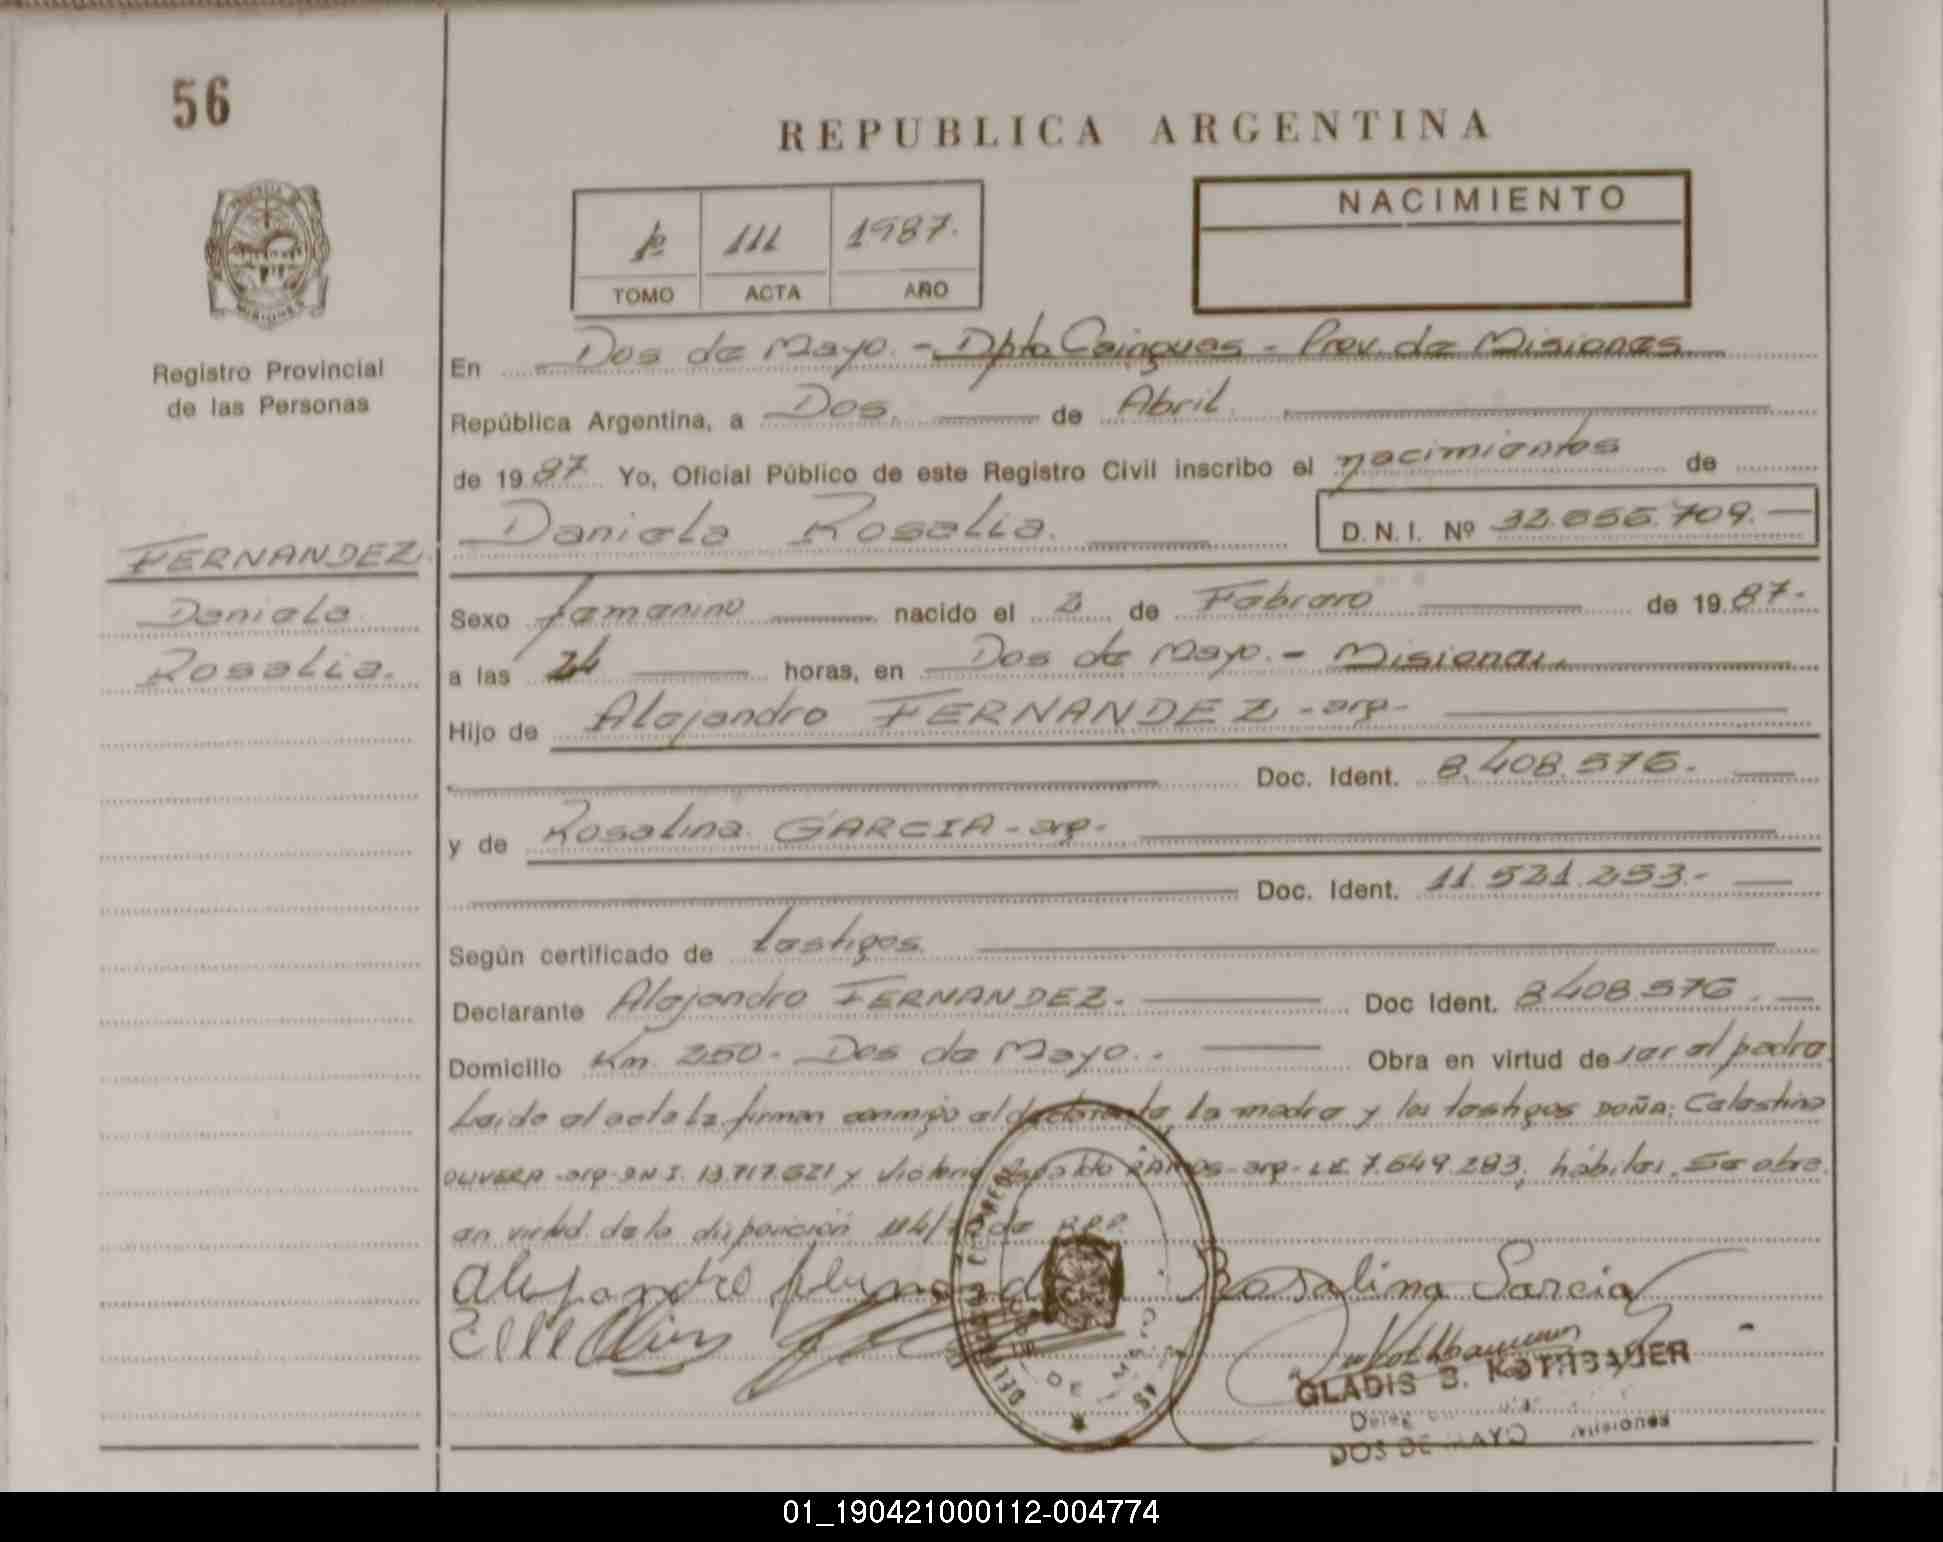 56
REPUBLICA ARGENTINA
NACIMIENTO
1º 111 1987.
TOMO ACTA AÑO
Registro Provincial
de las Personas
En Dos de Mayo. - Dpto Cainguas - Prov. de Misiones
República Argentina, a Dos. de Abril.
de 19 87 Yo, Oficial Público de este Registro Civil inscribo el nacimientos de
Daniela Rosalia. D.N.I. Nº 32.656.709.
FERNANDEZ.
Daniela
Rosalia.
Sexo femenino nacido el 2 de Febrero de 19 87.
a las 24 horas, en Dos de Mayo. - Misiones.
Hijo de Alejandro FERNANDEZ - arg-
Doc. Ident. 8.408.576.
y de Rosalina GARCIA - arg-
Doc. Ident. 11.521.253.-
Según certificado de testigos
Declarante Alejandro FERNANDEZ. Doc Ident. 8.408.576.
Domicilio Km. 250. Dos de Mayo. Obra en virtud de ser el padre
Leido el acta la firman conmigo el declarante, la madre y los testigos DOÑA: Celestina
OLIVERA - arg - D.N.I. 13.717.621 y RAMOS - arg - L.E. 7.649.283, hábiles. Se obra
en virtud de la disposición de R.P.P.
Alejandro Rosalina Garcia
GLADIS B. KOTHBAUER
DOS DE MAYO Misiones
01_190421000112-004774